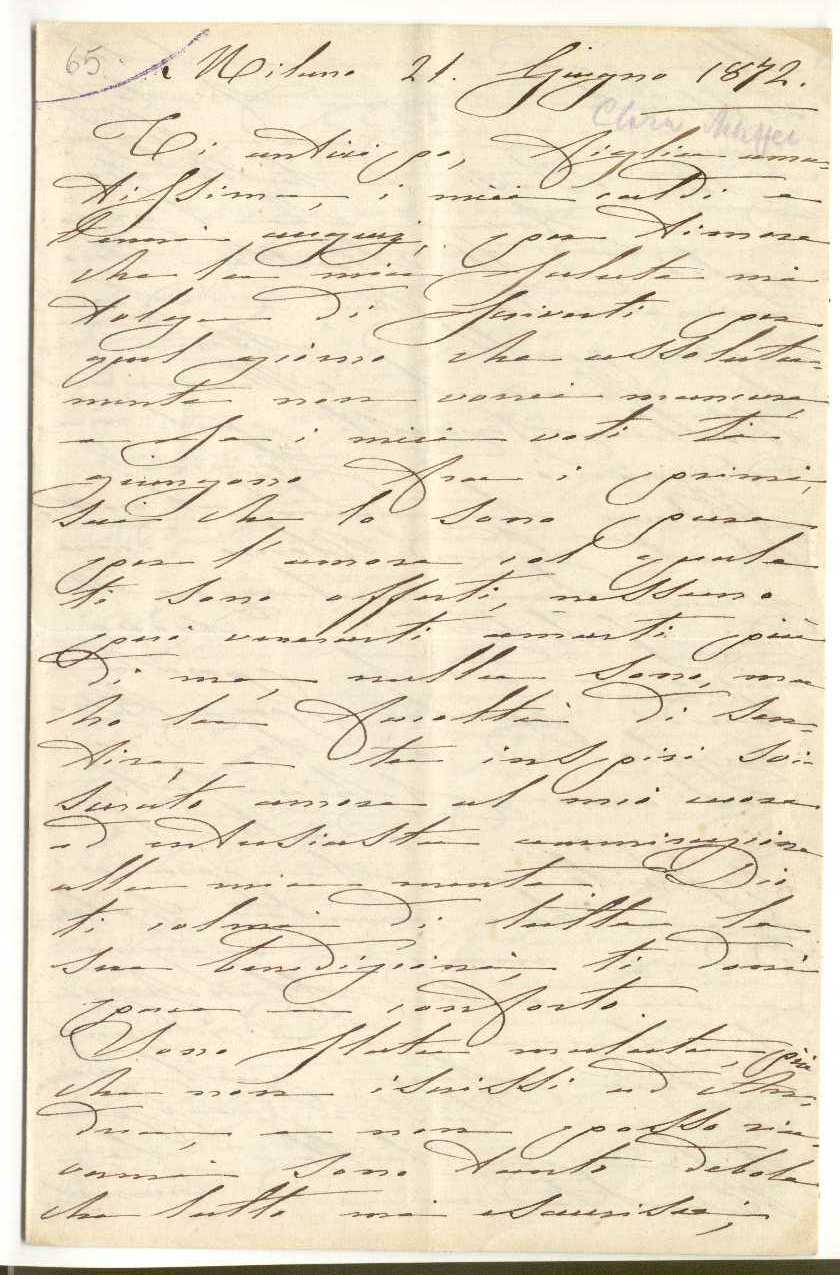 65.
Milano 21. Giugno 1872.
Clara Maffei
Ti anticipo, Figlia ama-
tissima, i miei caldi e
teneri augurj, per timore
che la mia salute mi
tolga di scriverti per
quel giorno che assoluta-
mente non vorrei mancare,
e se i miei voti ti
giungono fra i primi,
sai che lo sono pure
per l'amore col quale
ti sono offerti, nessuno
può amarti più
di me, nulla sono, ma
ho la facoltà di sen-
tire, e tu inspiri
amore al mio cuore
ed entusiasta ammirazione
alla mia mente. Dio
ti colmi di tutte le
sue benedizioni, ti doni
pace e conforto.
Sono stata malata, più
che non iscrissi ad An-
drea, e non posso ria-
vermi sono tanto debole
che tutto mi esaurisce,